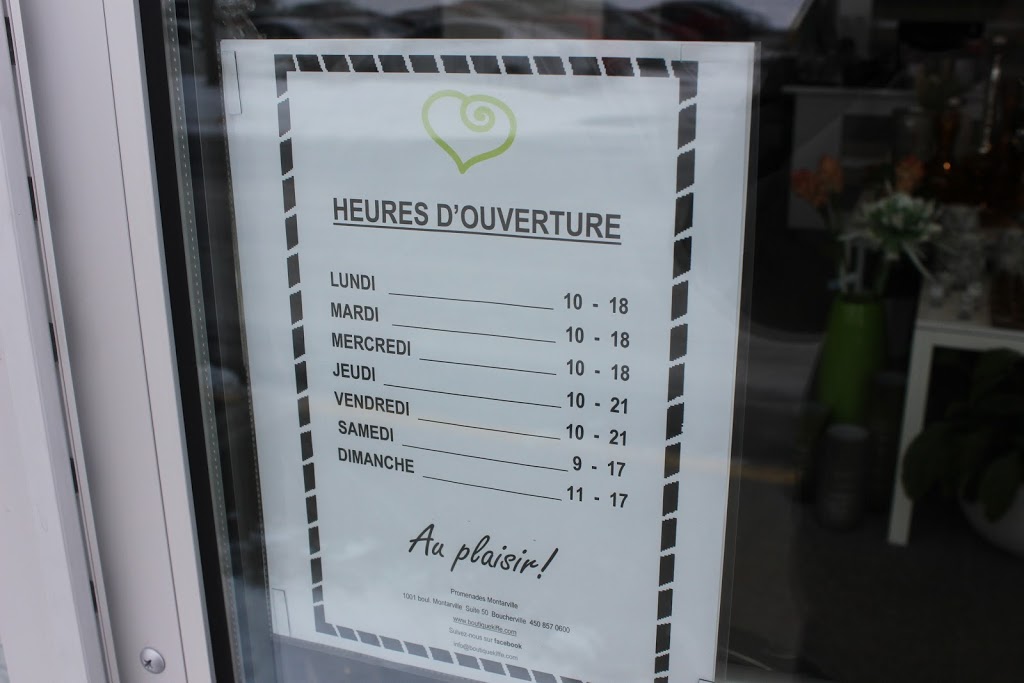 HEURES D'OUVERTURE
LUNDI 10 - 18
MARDI 10 - 18
MERCREDI 10 - 18
JEUDI 10 - 21
VENDREDI 10 - 21
SAMEDI 9 - 17
DIMANCHE 11 - 17
Au plaisir!
Promenades Montarville
1001 boul. Montarville Suite 50 Boucherville 450 857 0600
www.boutiquekiffe.com
Suivez-nous sur facebook
info@boutiquekiffe.com